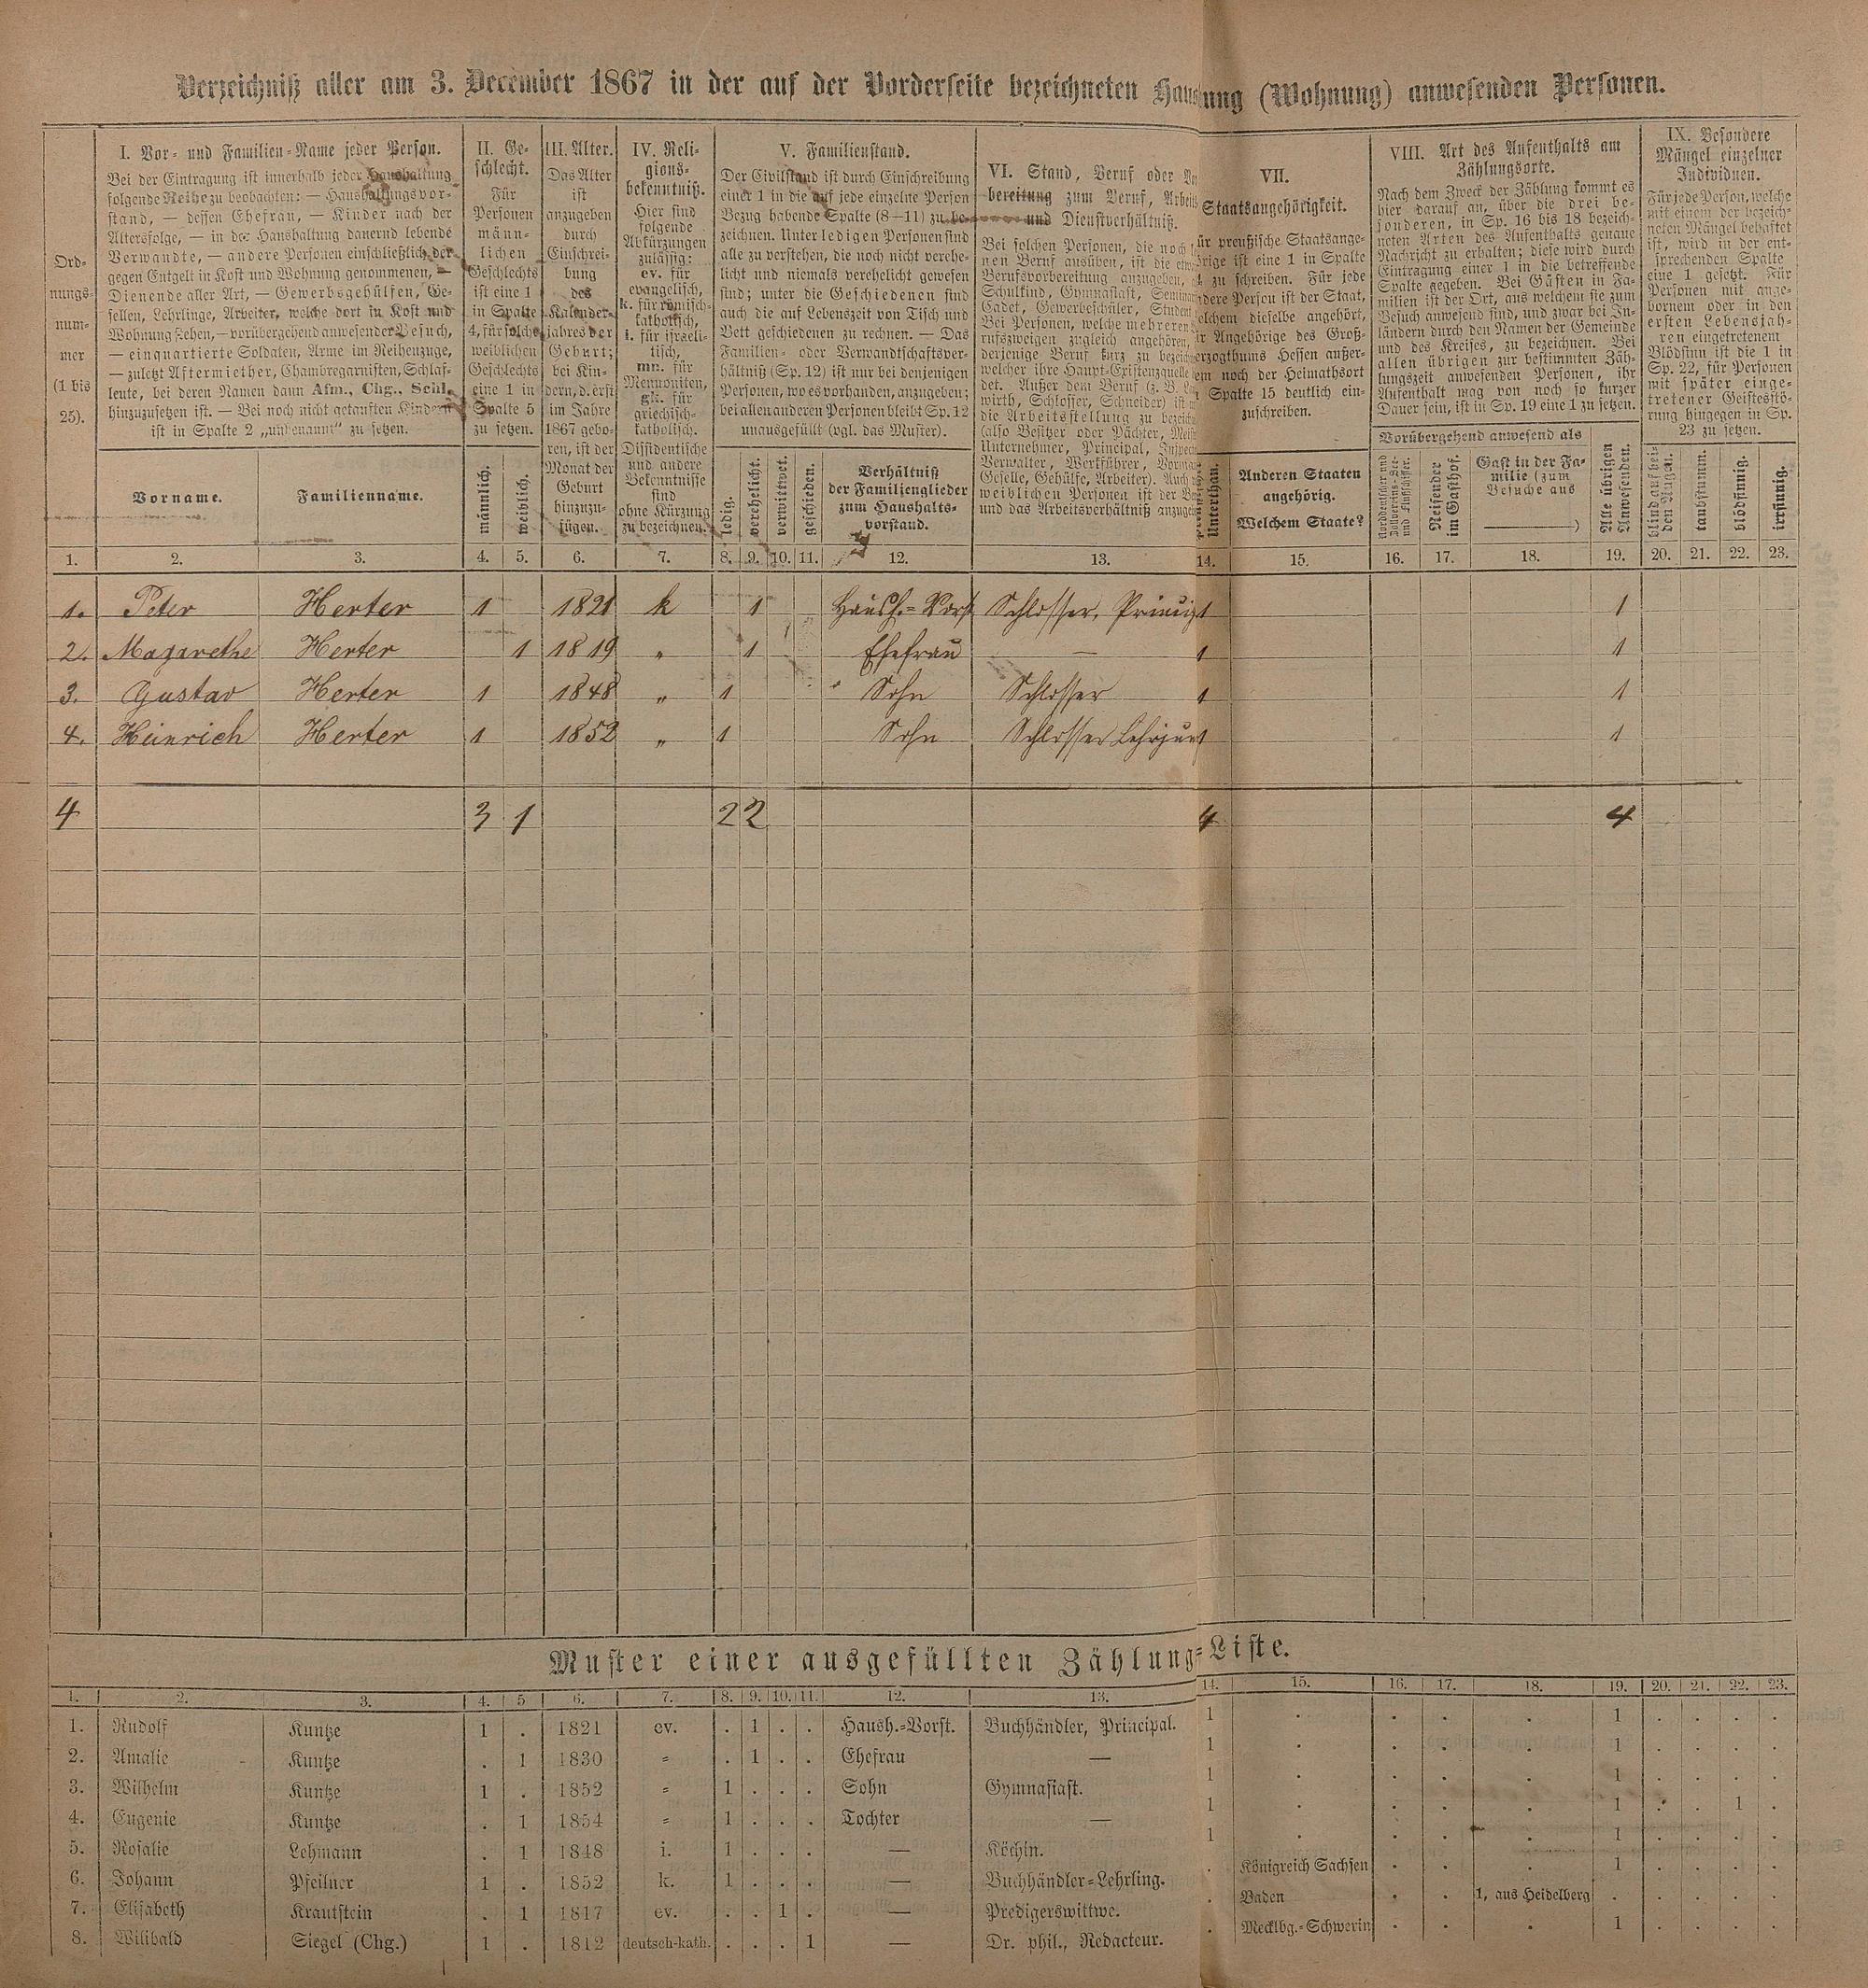 Verzeichniß aller am 3. December 1867 in der auf der Vorderseite bezeichneten Haus ung (Wohnung) anwesenden Personen.
Ord-
nungs-
num-
mer
(1 bis
25).
I. Vor- und Familien-Name jeder Person.
Bei der Eintragung ist innerhalb jeder Haushaltung
folgende Reihe zu beobachten: — Haushaltungsvor-
stand, — dessen Ehefrau, — Kinder nach der
Altersfolge, — in der Haushaltung dauernd lebende
Verwandte, — andere Personen einschließlich der
gegen Entgelt in Kost und Wohnung genommenen, —
Dienende aller Art, — Gewerbsgehülfen, Ge-
sellen, Lehrlinge, Arbeiter, welche dort in Kost und
Wohnung stehen, — vorübergehend anwesender Besuch,
— einquartierte Soldaten, Arme im Reihenzuge,
— zuletzt Aftermiether, Chambregarnisten, Schlaf-
leute, bei deren Namen dann Afm., Chg., Schl.
hinzuzusetzen ist. — Bei noch nicht getauften Kindern
ist in Spalte 2 „unbenannt" zu setzen.
Vorname.
Familienname.
II. Ge-
schlecht.
Für
Personen
männ-
lichen
Geschlechts
ist eine 1
in Spalte
4, für solche
weiblichen
Geschlechts
eine 1 in
Spalte 5
zu setzen.
männlich.
weiblich.
III. Alter.
Das Alter
ist
anzugeben
durch
Einschrei-
bung
des
Kalender-
jahres der
Geburt;
bei Kin-
dern, d. erst
im Jahre
1867 gebo-
ren, ist der
Monat der
Geburt
hinzuzu-
fügen.
IV. Reli-
gions-
bekenntniß.
Hier sind
folgende
Abkürzungen
zulässig:
ev. für
evangelisch,
k. für römisch-
katholisch,
i. für israeli-
tisch,
mn. für
Mennoniten,
gk. für
griechisch-
katholisch.
Dissidentische
und andere
Bekenntnisse
sind
ohne Kürzung
zu bezeichnen.
V. Familienstand.
Der Civilstand ist durch Einschreibung
einer 1 in die auf jede einzelne Person
Bezug habende Spalte (8—11) zu be-
zeichnen. Unter ledigen Personen sind
alle zu verstehen, die noch nicht verehe-
licht und niemals verehelicht gewesen
sind; unter die Geschiedenen sind
auch die auf Lebenszeit von Tisch und
Bett geschiedenen zu rechnen. — Das
Familien- oder Verwandtschaftsver-
hältniß (Sp. 12) ist nur bei denjenigen
Personen, wo es vorhanden, anzugeben;
bei allen anderen Personen bleibt Sp. 12
unausgefüllt (vgl. das Muster).
ledig.
verehelicht.
verwittwet.
geschieden.
Verhältniß
der Familienglieder
zum Haushalts-
vorstand.
VI. Stand, Beruf oder
bereitung zum Beruf, Arbeits
und Dienstverhältniß.
Bei solchen Personen, die noch
nen Beruf ausüben, ist die
Berufsvorbereitung anzugeben,
Schulkind, Gymnasiast,
Cadet, Gewerbeschüler,
Bei Personen, welche mehreren
rufszweigen zugleich angehören,
derjenige Beruf kurz zu
welcher ihre Haupt-Existenzquelle
det. Außer dem Beruf (z. B.
wirth, Schlosser, Schneider) ist
die Arbeitsstellung zu
(also Besitzer oder Pächter,
Unternehmer, Principal,
Verwalter, Werkführer,
Geselle, Gehülfe, Arbeiter). Auch
weiblichen Personen ist der
und das Arbeitsverhältniß
VII.
Staatsangehörigkeit.
ür preußische Staatsange-
örige ist eine 1 in Spalte
zu schreiben. Für jede
dere Person ist der Staat,
elchem dieselbe angehört,
Angehörige des Groß-
erzogthums Hessen außer-
em noch der Heimathsort
Spalte 15 deutlich ein-
zuschreiben.
Unterthan.
Anderen Staaten
angehörig.
Welchem Staate?
VIII. Art des Aufenthalts am
Zählungsorte.
Nach dem Zweck der Zählung kommt es
hier darauf an, über die drei be-
sonderen, in Sp. 16 bis 18 bezeich-
neten Arten des Aufenthalts genaue
Nachricht zu erhalten; diese wird durch
Eintragung einer 1 in die betreffende
Spalte gegeben. Bei Gästen in Fa-
milien ist der Ort, aus welchem sie zum
Besuch anwesend sind, und zwar bei In-
ländern durch den Namen der Gemeinde
und des Kreises, zu bezeichnen. Bei
allen übrigen zur bestimmten Zäh-
lungszeit anwesenden Personen, ihr
Aufenthalt mag von noch so kurzer
Dauer sein, ist in Sp. 19 eine 1 zu setzen.
Vorübergehend anwesend als
Norddeutscher und
Zollvereins-See-
und Flußschiffer.
Reisender
im Gasthof.
Gast in der Fa-
milie (zum
Besuche aus
)
Alle übrigen
Anwesenden.
IX. Besondere
Mängel einzelner
Individuen.
Für jede Person, welche
mit einem der bezeich-
neten Mängel behaftet
ist, wird in der ent-
sprechenden Spalte
eine 1 gesetzt. Für
Personen mit ange-
bornem oder in den
ersten Lebensjah-
ren eingetretenem
Blödsinn ist die 1 in
Sp. 22, für Personen
mit später einge-
tretener Geistesstö-
rung hingegen in Sp.
23 zu setzen.
blind auf bei-
den Augen.
taubstumm.
blödsinnig.
irrsinnig.
1. 2. 3. 4. 5. 6. 7. 8. 9. 10. 11. 12. 13. 14. 15. 16. 17. 18. 19. 20. 21. 22. 23.
1. Peter Herter 1 1821 k 1 Haush.-Vorst Schlosser, Prinzip 1 1
2. Magarethe Herter 1 1819 „ 1 Ehefrau — 1 1
3. Gustav Herter 1 1848 „ 1 Sohn Schlosser 1 1
4. Heinrich Herter 1 1852 „ 1 Sohn Schlosser Lehrjun 1 1
4 3 1 2 2 4 4
Muster einer ausgefüllten Zählung-Liste.
1. 2. 3. 4. 5 6. 7. 8. 9. 10. 11. 12. 13. 14. 15. 16. 17. 18. 19. 20. 21. 22. 23.
1. Rudolf Kuntze 1 . 1821 ev. . 1 . . Haush.-Vorst. Buchhändler, Principal. 1 . . . . 1 . . . .
2. Amalie Kuntze . 1 1830 " . 1 . . Ehefrau — 1 . . . . 1 . . . .
3. Wilhelm Kuntze 1 . 1852 " 1 . . . Sohn Gymnasiast. 1 . . . . 1 . . . .
4. Eugenie Kuntze . 1 1854 " 1 . . . Tochter — 1 . . . . 1 . . 1 .
5. Rosalie Lehmann . 1 1848 i. 1 . . . — Köchin. 1 . . . . 1 . . . .
6. Johann Pfeilner 1 . 1852 k. 1 . . . — Buchhändler-Lehrling. . Königreich Sachsen . . . 1 . . . .
7. Elisabeth Krautstein . 1 1817 ev. . . 1 . — Predigerswittwe. . Baden . . 1, aus Heidelberg . . . . .
8. Wilibald Siegel (Chg.) 1 . 1812 deutsch-kath. . . . 1 — Dr. phil., Redacteur. . Mecklbg.-Schwerin . . . 1 . . . .